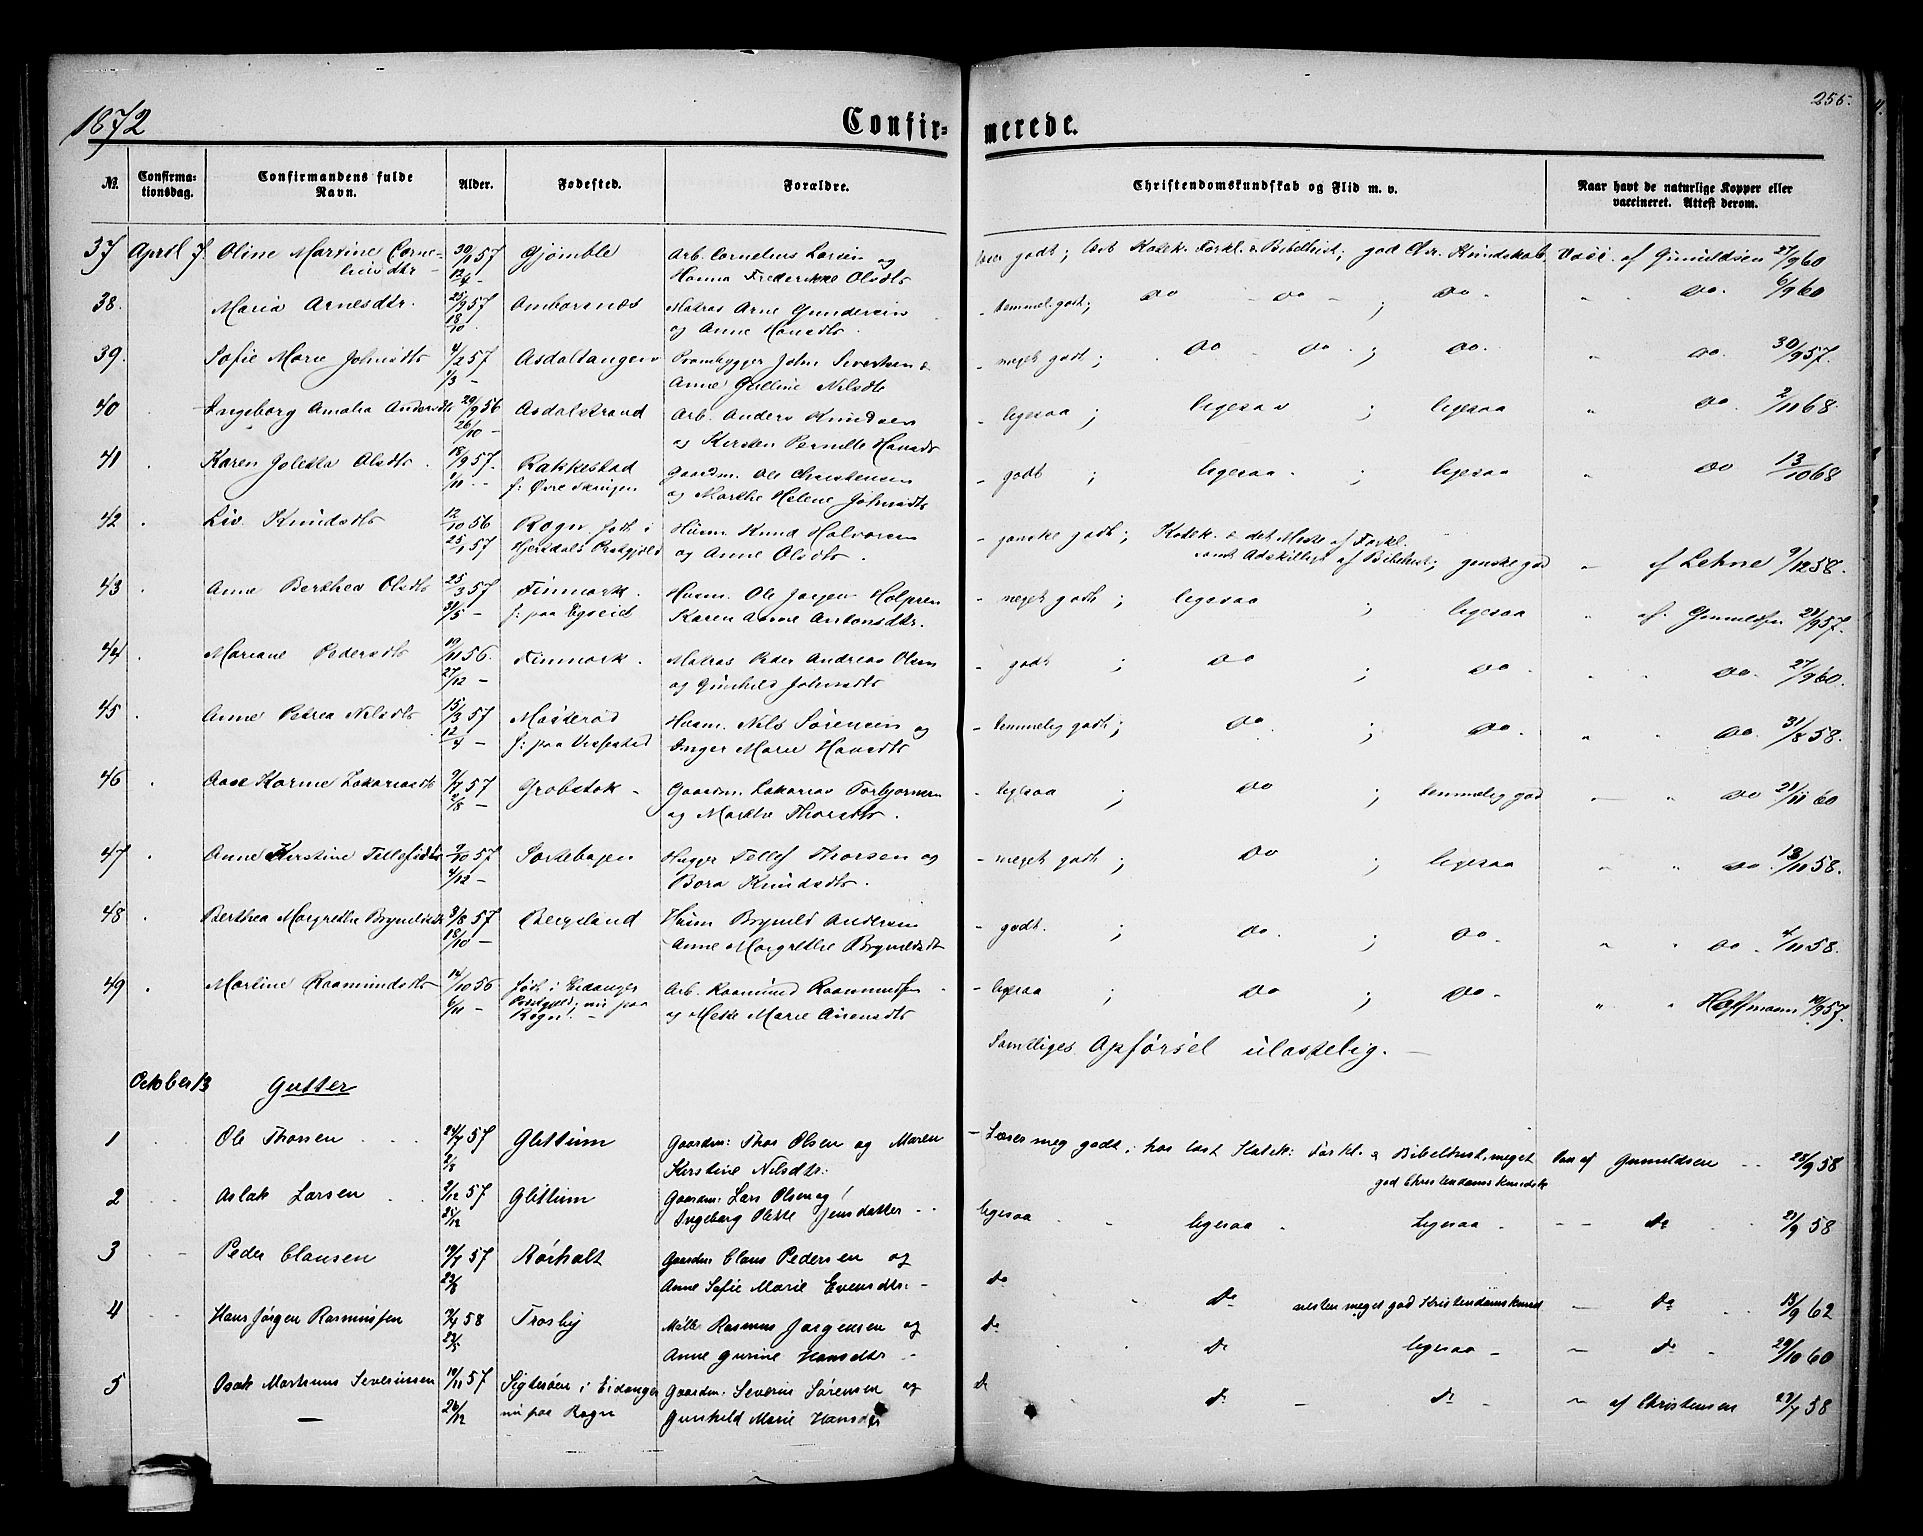 1872
Confirmerede.
255.
№.
Confirmationsdag.
Confirmandens fulde Navn.
Alder.
Fødested.
Forældre.
Christendomskundskab og Flid m. v.
Naar havt de naturlige Kopper eller vaccineret. Attest derom.
37 April 7 Oline Martine Corne- 30/1 57 Gjømble Arb. Cornelius Larsen og læser godt; læst Katek. Forkl. & Bibelhist; god Chr. Kundskab Vacc. af Gunuldsen 27/9 60
leiusdtr 12/4 - Hanna Frederikke Olsdtr
38. Maria Arnesdtr. 25/9 57 Ambornæs Matros Arne Gundersen - temmel. godt; do - do - ; do. " " do. 6/9 60
18/10 og Anne Hansdtr.
39. Sofie Marie Johnsdtr 4/2 57 Asdaltangen Brambygger John Severtsen & - meget godt; do - do. ; do. " do. 30/9 57.
1/3 - Anne Gulline Nilsdtr
40 Ingeborg Amalia Andersdtr 29/9 56 Asdalstrand Arb. Anders Knudsen - ligesaa ; ligesaa ; ligesaa " do. 2/11 68.
26/10 - og Kirsten Pernille Hansdtr
41 Karen Joletta Olsdtr. 18/9 57. Rakkestad Gaardm. Ole Christensen - godt ; ligesaa. ; ligesaa " do 13/10 68
1/11 - f: Øvre og Marthe Helene Johnsdtr
42 Liv Knudsdtr 12/10 56 Rogn. født i Husm. Knud Halvorsen - ganske godt; Katek. & det Meste af Forkl.
25/1 57 Hjersdals Prstgjeld og Anne Olsdtr. samt Adskilligt af Bibelhist; ganske god - af Lehne 9/12 58.
43 Anne Berthea Olsdtr 25/3 57 Finmark. Husm. Ole Jørgen Holgersen - meget godt ; ligesaa ; ligesaa " af Gunuldsen 28/9 57.
31/5 - f: paa Egseid Karen Anne Antonsdtr.
44 Mariane Pedersdtr 19/11 56. Finmark. Matros Peder Andreas Olsen - godt ; do ; do. " do. 27/9 60.
27/12 - og Gunhild Johnsdtr
45 Anne Petrea Nilsdtr 15/3 57 Møsterød Husm. Nils Sørensen og - temmelig godt; do. ; do. " " do. 31/8 58.
12/4 - f: paa Vissestad Inger Marie Hansdtr
46 Aase Karine Zakariasdtr 9/7 57 Grobstok - Gaardm. Zakarias Torbjørnsen - ligesaa ; do ; temmelig god - " do 21/11 60
2/8 - og Marthe Thorsdtr.
47 Anne Kirstine Tellefsdtr 9/10 57 Sortebogen Hugger Tellef Thorsen og - meget godt ; do ; ligesaa " " do. 13/11 58.
4/12 - Bora Knudsdtr.
48 Berthea Margrethe Brynildsdtr 3/8 57 Bergsland Husm Brynild Andersen - godt. ; do. ; do. " " do. 4/11 58.
18/10 - Anne Margrethe Brynildsdtr
49 Martine Raamundsdtr 14/10 56 født i Eidanger Arb. Raamund Raamundsen - ligesaa ; do ; do - " " Hoffmann 10/9 57.
6/11 - Prstgjeld; nu paa og Mette Marie Aneusdtr
Rogn. -
Samtliges Opførsel ulastelig. -
October 13 Gutter
1 Ole Thorsen 24/7 57 Glittum Gaardm: Thor Olsen og Maren - Læser meg godt; har læst Katek: Forkl. & Bibelhist, meget Vac af Gunuldsen 28/9 58
2/8 Kirstine Nilsdtr: god Christendomskundsk
2 Aslak Larsen 2/12 57 Glittum Gaardm: Lars Olsen og ligesaa ligesaa ligesaa - - do 21/9 58
25/12 Ingeborg Olette Jensdatter
3 Peder Clausen 19/7 57 Rørholt Gaardm: Claus Pedersen og do do næsten meget god Kristendomskund - do 13/9 62
23/8 Anne Sofie Marie Evensdtr: -
4 Hans Jørgen Rasmussen 9/4 58 Trosby Møller Rasmus Jørgensen og do do ligesaa - do 29/10 60
23/5 Anne Gurine Hansdtr -
5 Isak Markinus Severinsen 19/11 57 Sigtesøen i Eidanger Gaardm: Severin Sørensen og do do do af Christensen 23/7 58
26/12 nu paa Rogn Gunhild Marie Hansdtr